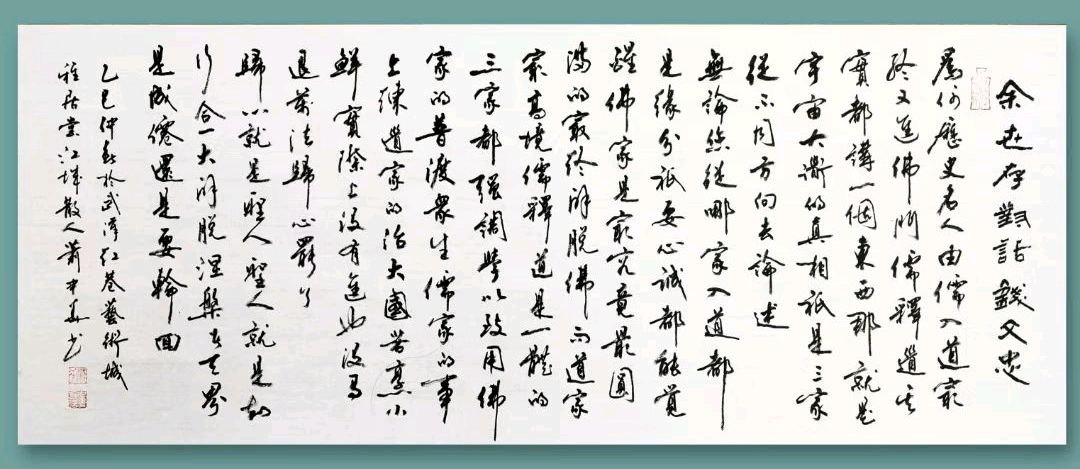 余世存對話錢文忠
爲何歷史名人由儒入道最
終又進佛門儒釋道其
實都講一個東西那就是
宇宙大衜的真相祇是三家
從不同方向去論述
無論您從哪家入道都
是緣分祇要心誠都能覺
醒佛家是最究竟最圓
滿的最終解脫佛而道家
最高境儒釋道是一體的
三家都强調學以致用佛
家的普渡衆生儒家的事
上練道家的治大國若烹小
鮮實際上没有進也没有
退萬法歸心罷了
歸心就是聖人聖人就是知
行合一大解脫涅槃在天界
是成僊還是要輪回
乙巳仲春於武漢紅巷藝術城
雅居堂江城散人蕭中華書